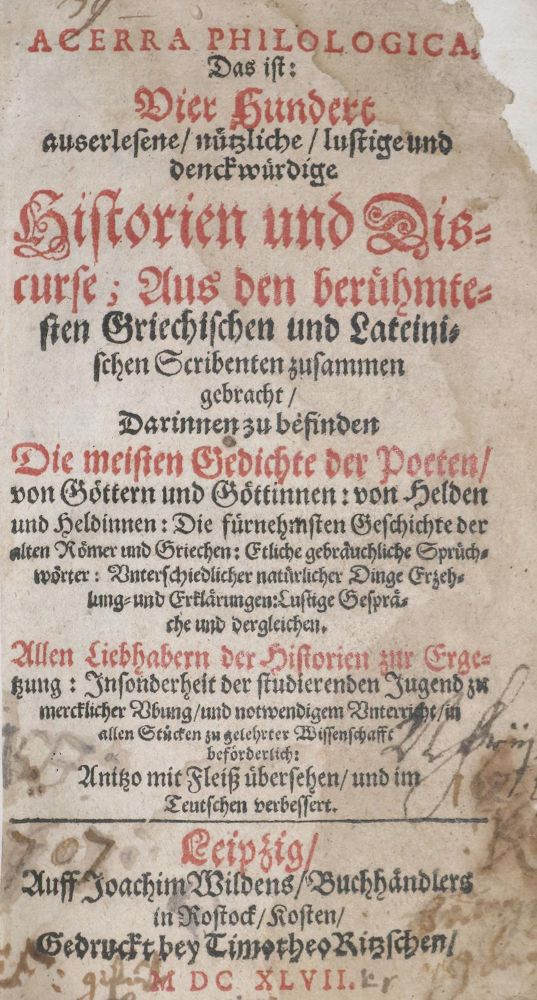 ACERRA PHILOLOGICA,
Das ist:
Vier Hundert
auserlesene/ nützliche/ lustige und
denckwürdige
Historien und Dis-
curse; Aus den berühmte-
sten Griechischen und Lateini-
schen Scribenten zusammen
gebracht/
Darinnen zu befinden
Die meisten Gedichte der Poeten/
von Göttern und Göttinnen: von Helden
und Heldinnen: Die fürnehmsten Geschichte der
alten Römer und Griechen: Etliche gebräuchliche Sprüch-
wörter: Vnterschiedlicher natürlicher Dinge Erzeh-
lung- und Erklärungen: Lustige Gesprä-
che und dergleichen.
Allen Liebhabern der Historien zur Erge-
tzung: Insonderheit der studierenden Jugend zu
mercklicher Vbung/ und notwendigem Vnterricht/ in
allen Stücken zu gelehrter Wissenschafft
beförderlich:
Anitzo mit Fleiß übersehen/ und im
Teutschen verbessert.
1707.
Leipzig/
Auff Joachim Wildens/ Buchhändlers
in Rostock/ Kosten/
Gedruckt bey Timotheo Ritzschen/
M DC XLVII.